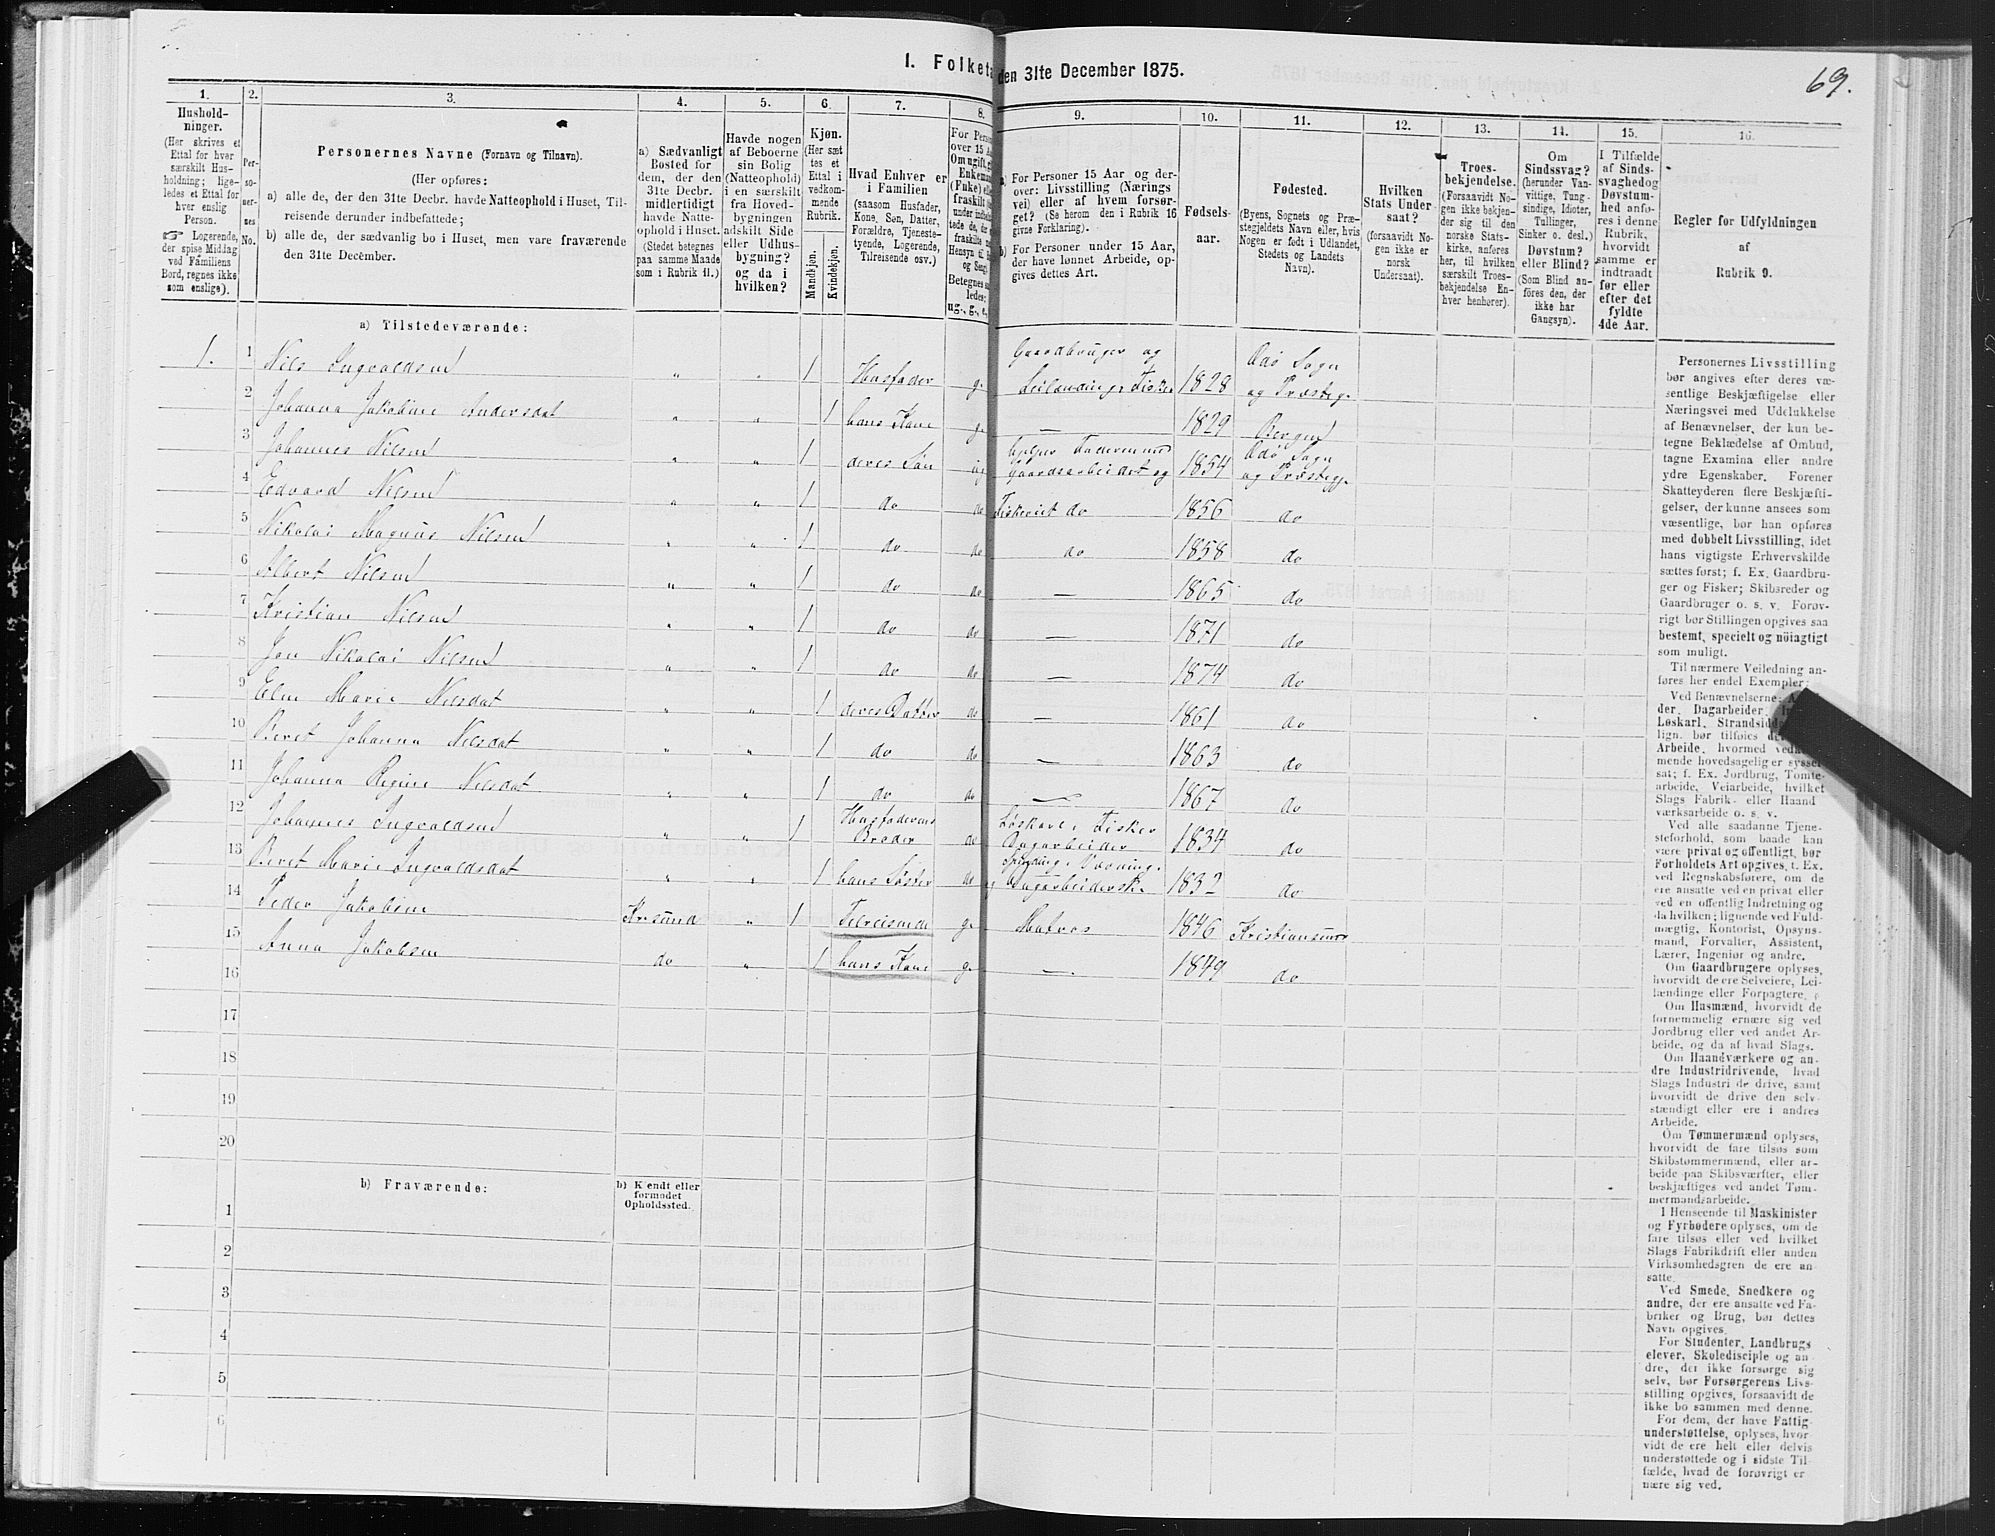 1. Folketæ den 31te December 1875.
69.
1.
Hushold-
ninger.
(Her skrives et
Ettal for hver
særskilt Hus-
holdning; lige-
ledes et Ettal for
hver enslig
Person.
☞ Logerende,
der spise Middag
ved Familiens
Bord, regnes ikke
som enslige).
2.
Per-
so-
ner-
nes
No.
3.
Personernes Navne (Fornavn og Tilnavn).
(Her opføres:
a) alle de, der den 31te Decbr. havde Natteophold i Huset, Til-
reisende derunder indbefattede;
b) alle de, der sædvanlig bo i Huset, men vare fraværende
den 31te December.
4.
a) Sædvanligt
Bosted for
dem, der den
31te Decbr.
midlertidigt
havde Natte-
ophold i Huset.
(Stedet betegnes
paa samme Maade
som i Rubrik 11.)
5.
Havde nogen
af Beboerne
sin Bolig
(Natteophold)
i en særskilt
fra Hoved-
bygningen
adskilt Side
eller Udhus-
bygning?
og da i
hvilken?
6.
Kjøn.
(Her sæt
tes et
Ettal i
vedkom-
mende
Rubrik.
Mandkjøn.
Kvindekjøn.
7.
Hvad Enhver er
i Familien
(saasom Husfader,
Kone, Søn, Datter,
Forældre, Tjeneste-
tyende, Logerende,
Tilreisende osv.)
8.
For Person
over 15 Aa
Om ugift, g
Enkeman
(Enke) elle
fraskilt
ug., g., e.,
9.
a) For Personer 15 Aar og der-
over: Livsstilling (Nærings
vei) eller af hvem forsør-
get? (Se herom den i Rubrik 16
givne Forklaring).
b) For Personer under 15 Aar,
der have lønnet Arbeide, op-
gives dettes Art.
10.
Fødsels-
aar.
11.
Fødested.
(Byens, Sognets og Præ-
stegjeldets Navn eller, hvis
Nogen er født i Udlandet,
Stedets og Landets
Navn).
12.
Hvilken
Stats Under-
saat?
(forsaavidt No-
gen ikke er
norsk
Undersaat).
13.
Troes-
bekjendelse.
(Forsaavidt No-
gen ikke bekjen-
der sig til den
norske Stats-
kirke, anføres
her, til hvilken
særskilt Troes-
bekjendelse En-
hver henhører).
14.
Om
Sindssvag?
(herunder Van-
vittige, Tung-
sindige, Idioter,
Tullinger,
Sinker o. desl.)
Døvstum?
eller Blind?
(Som Blind an-
föres den, der
ikke har
Gangsyn).
15.
I Tilfælde
af Sinds-
svaghed og
Døvstum-
hed anfø-
res i denne
Rubrik,
hvorvidt
samme er
indtraadt
før eller
efter det
fyldte
4de Aar.
16.
Regler for Udfyldningen
af
Rubrik 9.
a) Tilstedeværende:
1. 1 Nils Ingvaldsen " " 1 Husfader g. Gaardbruger og Leilænding, Fisker 1828 Edø Sogn og Præsteg.
2 Johanna Jakobine Andersdat " " 1 hans Kone g. — 1829 Bergen
3 Johannes Nilsen " " 1 deres Søn ug hjelper Faderen med Gaardsarbeidet og 1854 Edø Sogn og Præstegj.
4 Edvard Nilsen " " 1 do do Fiskeriet do 1856 do
5 Nikolai Magnus Nilsen " " 1 do do do 1858 do
6 Albert Nilsen " " 1 do do — 1865 do
7 Kristian Nilsen " " 1 do do — 1871 do
8 Jon Nikolai Nilsen " " 1 do do — 1874 do
9 Elen Marie Nilsdat " " 1 deres Datter do — 1861 do
10 Beret Johanna Nilsdat " " 1 do do — 1863 do
11 Johanna Regine Nilsdat " " 1 do do — 1867 do
12 Johannes Ingvaldsen " " 1 Husfaderens Broder do Løskarl, Fisker Dagarbeider 1834 do
13 Beret Marie Ingvaldsdat " " 1 hans Søster do Spinding, Vævning, og Dagarbeiderske 1832 do
14 Peder Jakobsen Kr.sund " 1 Tilreisende g. Matros 1846 Kristiansund
15 Anna Jakobsen do " 1 hans Kone g. — 1849 do
16
17
18
19
20
b) Fraværende:
b) Kjendt eller
formodet
Opholdssted.
1
2
3
4
5
6
Personernes Livsstilling
bør angives efter deres væ-
sentlige Beskjæftigelse eller
Næringsvei med Udelukkelse
af Benævnelser, der kun be-
tegne Beklædelse af Ombud,
tagne Examina eller andre
ydre Egenskaber. Forener
Skatteyderen flere Beskjæfti-
gelser, der kunne ansees som
væsentlige, bør han opføres
med dobbelt Livsstilling, idet
hans vigtigste Erhvervskilde
sættes først; f. Ex. Gaardbru-
ger og Fisker; Skibsreder og
Gaardbruger o. s. v. Forøv-
rigt bør Stillingen opgives saa
bestemt, specielt og nöiagtigt
som muligt.
Til nærmere Veiledning an-
føres her endel Exempler:
Ved Benævnelserne:
der, Dagarbeider,
Løskarl, Strandsidd
lign. bør tilføies
Arbeide, hvormed vedkom-
mende hovedsagelig er syssel-
sat; f. Ex. Jordbrug, Tomte-
arbeide, Veiarbeide, hvilket
Slags Fabrik- eller Haand
værksarbeide o. s. v.
Ved alle saadanne Tjene-
steforhold, som baade kan
være privat og offentligt, bør
Forholdets Art opgives, t. Ex.
ved Regnskabsførere, om de
ere ansatte ved en privat eller
ved en offentlig Indretning og
da hvilken; lignende ved Fuld-
mægtig, Kontorist, Opsyns-
mand, Forvalter, Assistent,
Lærer, Ingeniør og andre.
Om Gaardbrugere oplyses,
hvorvidt de ere Selveiere, Lei-
lændinge eller Forpagtere.
Om Husmænd, hvorvidt de
fornemmelig ernære sig ved
Jordbrug eller ved andet Ar-
beide, og da af hvad Slags.
Om Haandværkere og an-
dre Industridrivende, hvad
Slags Industri de drive, samt
hvorvidt de drive den selv-
stændigt eller ere i andres
Arbeide.
Om Tømmermænd oplyses,
hvorvidt de fare tilsøs som
Skibstømmermænd, eller ar-
beide paa Skibsværfter, eller
beskjæftiges ved andet Tøm-
mermandsarbeide.
I Henseende til Maskinister
og Fyrbødere oplyses, om de
fare tilsøs eller ved hvilket
Slags Fabrikdrift eller anden
Virksomhedsgren de ere an-
satte.
Ved Smede, Snedkere og
andre, der ere ansatte ved Fa-
briker og Brug, bør dettes
Navn opgives.
For Studenter, Landbrugs
elever, Skoledisciple og an-
dre, der ikke forsørge sig
selv, bør Forsørgerens Livs-
stilling opgives, forsaavidt de
ikke bo sammen med denne.
For dem, der have Fattig-
understøttelse, oplyses, hvor-
vidt de ere helt eller delvis
understøttede og i sidste Til-
fælde, hvad de forøvrigt er
nære sig ved.